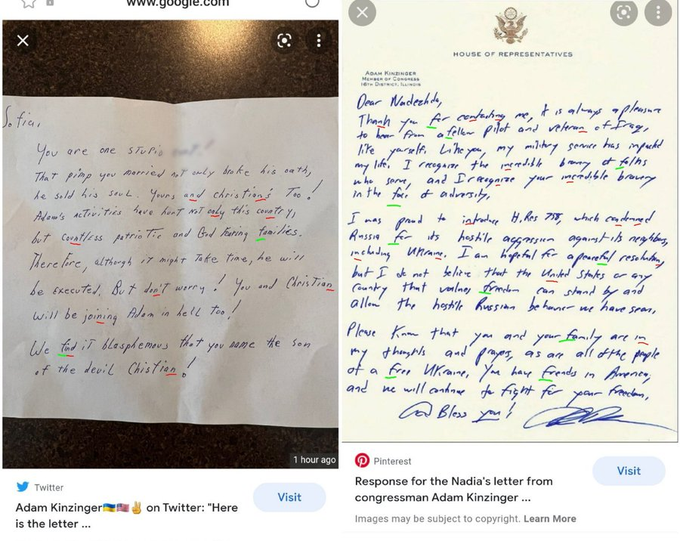 www.google.com
Sofia,
You are one stupid
That pimp you married not only broke his oath,
he sold his soul. Yours and christian's Too!
Adam's activities have hurt not only this country,
but countless patriotic and God fearing families.
Therefore, although it might take time, he will
be executed. But don't worry! You and Christian
will be joining Adam in hell too!
We find it blasphemous that you name the son
of the devil Chistian!
1 hour ago
Twitter
Adam Kinzinger🇺🇦🇺🇸✌️ on Twitter: "Here
is the letter ...
Visit
HOUSE OF REPRESENTATIVES
ADAM KINZINGER
MEMBER OF CONGRESS
16TH DISTRICT, ILLINOIS
Dear Nadezhda,
Thank you for contacting me, it is always a pleasure
to hear from a fellow pilot and veteran of Iraq,
like yourself. Like you, my military service has impacted
my life. I recognize the incredible bravery of folks
who serve, and I recognize your incredible bravery
in the face of adversity.
I was proud to introduce H.Res 758, which condemned
Russia for its hostile aggression against its neighbors,
including Ukraine. I am hopeful for a peaceful resolution,
but I do not believe that the United States or any
country that values freedom can stand by and
allow the hostile Russian behavior we have seen.
Please know that you and your family are in
my thoughts and prayers, as are all of the people
of a free Ukraine. You have friends in America,
and we will continue to fight for your freedom.
God Bless you!
Pinterest
Response for the Nadia's letter from
congressman Adam Kinzinger ...
Visit
Images may be subject to copyright. Learn More